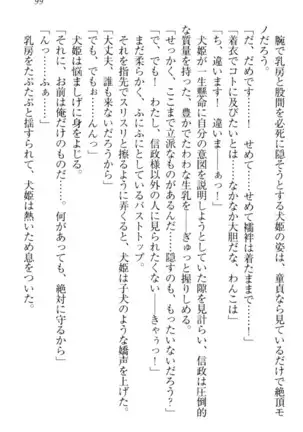 99
腕で乳房と股間を必死に隠そうとする犬姫の姿は、童貞なら見るだけで絶頂モ
ノだろう。
「だ、だめですっ！　せめて……せめて、襦袢は着たままで……！」
「着衣でコトに及びたいとは……なかなか大胆だな、わんこは」
「ち、違います！　違いまーーあぅっ！」
犬姫が一生懸命に自分の意図を説明しようとしていた隙を見計らい、信政は圧倒的
な質量を持った、豊かでたわわな生乳を――ぎゅっと握りしめる。
「だーめ。ここまで立派なものがあるんだ……隠すのも、もったいないだろう？」
「で、でも……わたし、信政様以外の人に見られたくない――きゃぅっ！」
まだ柔らかく、ふにふにとしているバストトップ。
それを指先でスリスリと擦るように弄くると、犬姫は子犬のような嬌声を上げた。
「大丈夫、誰も来ないだろうから」
「でも、でもぉ……んんっ」
犬姫は悩ましげに身をよじる。
「それに、お前は俺だけのものだ……。何があっても、絶対に守るから」
「んっ……ふぁぁ……っ」
乳房をたぷたぷと揺すられて、犬姫は熱いため息をついた。